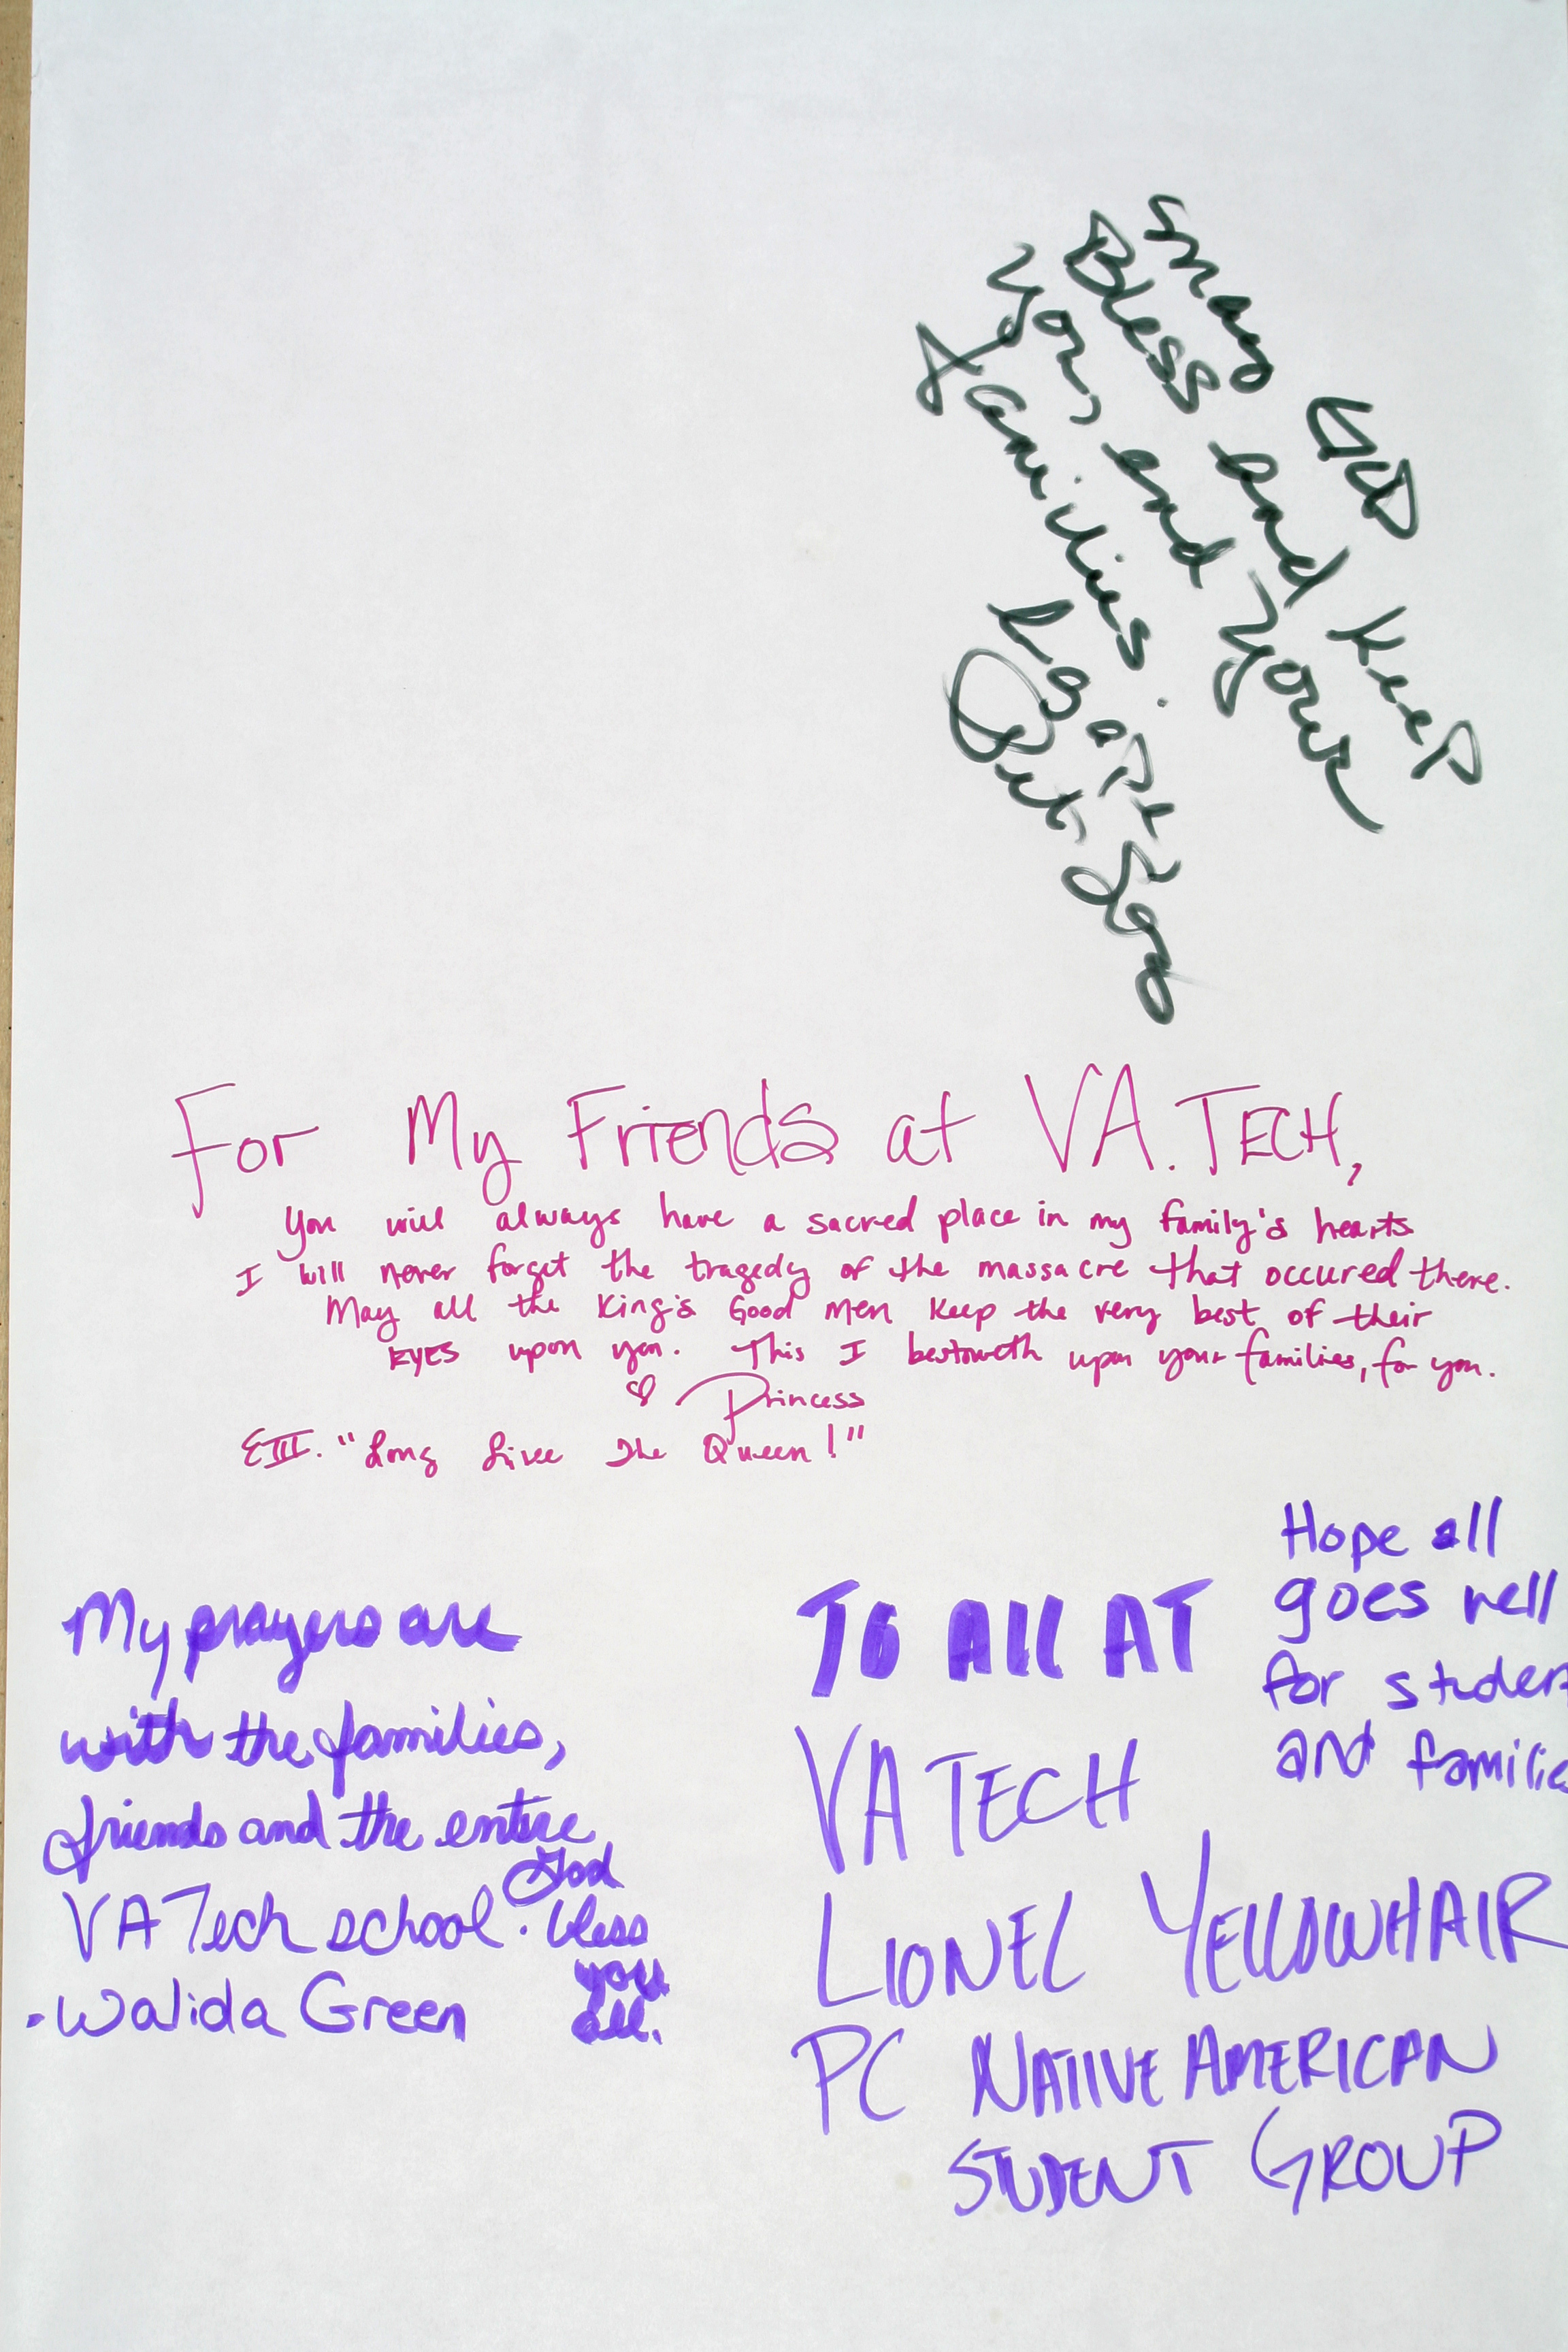 may GOD
Bless and Keep
you, and your
families.
For My Friends at VA. TECH,
You will always have a sacred place in my family's hearts
I will never forget the tragedy of the massacre that occured there.
May all the King's Good men keep the very best of their
EYES upon you. This I bestoweth upon your families, for you.
♡ Princess
EIII. "Long Live The Queen!"
My prayers are
with the families,
friends and the entire
VA Tech school. God
bless
you
all.
-Walida Green
TO All AT
VA TECH
LIONEL YELLOWHAIR
PC NATIVE AMERICAN
STUDENT GROUP
Hope all
goes well
for studen
and familie